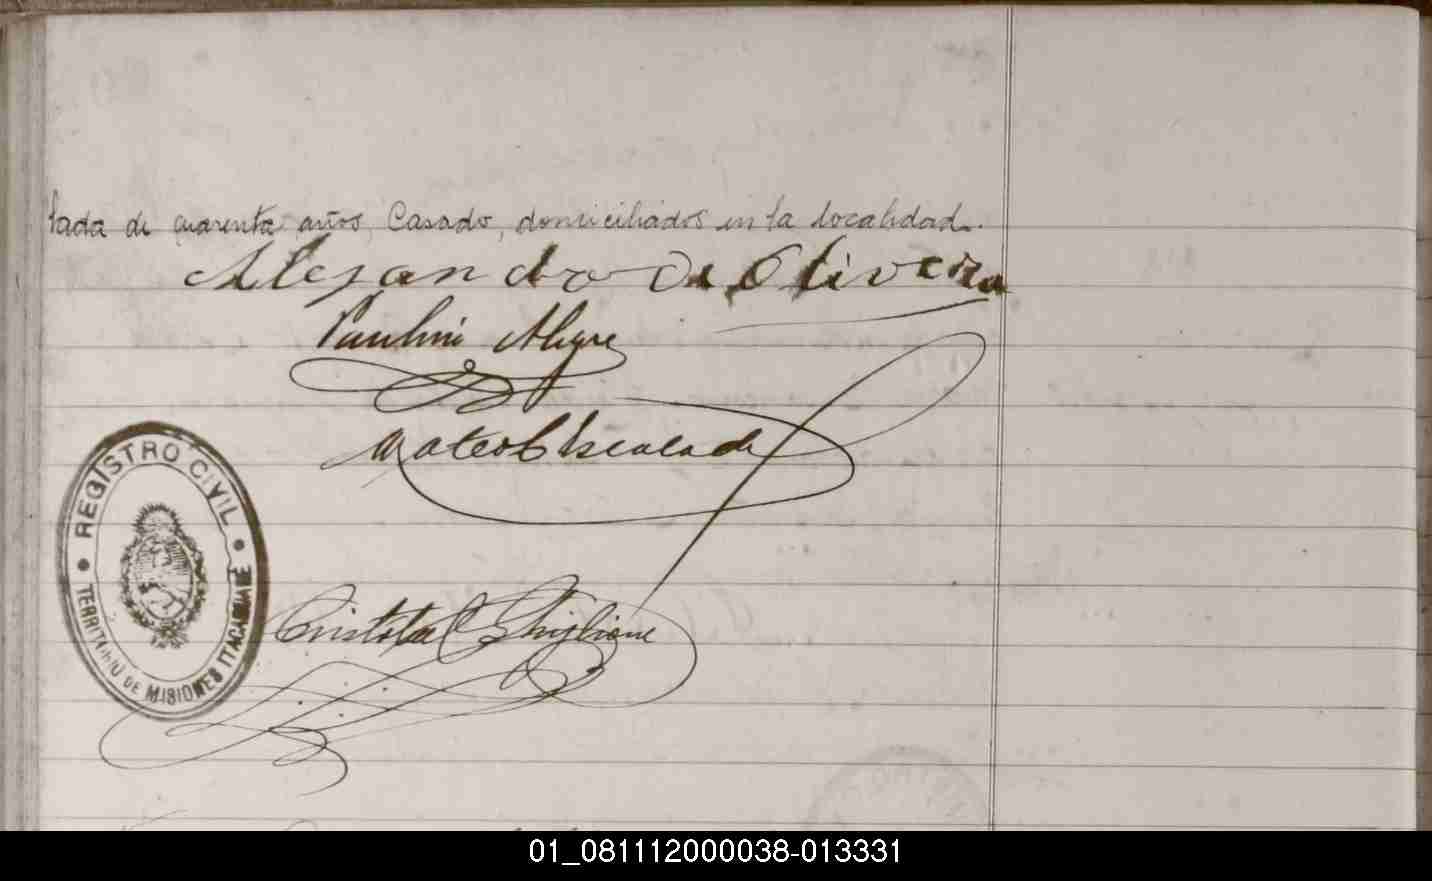 lada de cuarenta años, Casado, domiciliados en la localidad.
Alejandro de Olivera
Paulino Alegre
Mateo Escalada
REGISTRO CIVIL
TERRITORIO DE MISIONES ITACARUARÉ
Cristobal Ghiglione
01_081112000038-013331